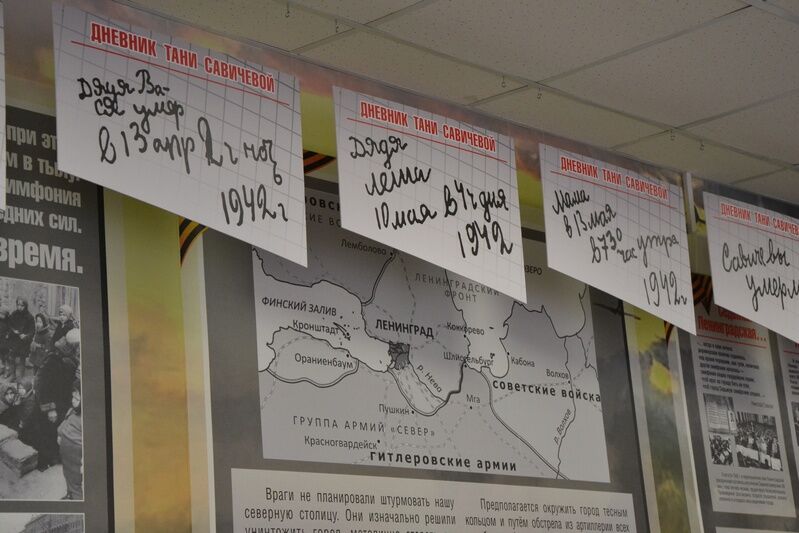 ДНЕВНИК ТАНИ САВИЧЕВОЙ
Дядя Ва-
ся умер
в 13 апр 2 ч ночь
1942 г
ДНЕВНИК ТАНИ САВИЧЕВОЙ
Дядя
Леша
10 мая в 4 ч дня
1942
ДНЕВНИК ТАНИ САВИЧЕВОЙ
Мама
в 13 мая
в 7 30
час утра
1942 г
ДНЕВНИК ТАНИ САВИЧЕВ
Савичевы
умерл
при эт
м в тылу.
имфония
едних сил.
время.
Лемболово
ОЗЕРО
ЛЕНИНГРАДСКИЙ
ФРОНТ
ФИНСКИЙ ЗАЛИВ
Кронштадт
ЛЕНИНГРАД
Кожкорево
Ораниенбаум
Шлиссельбург
Кабона
р. Нева
Волхов
советские войска
Мга
р. Волхов
Пушкин
ГРУППА АРМИЙ «СЕВЕР»
Красногвардейск
гитлеровские армии
Враги не планировали штурмовать нашу
северную столицу. Они изначально решили
уничтожить город
Предполагается окружить город тесным
кольцом и путём обстрела из артиллерии всех
Ленинградская...